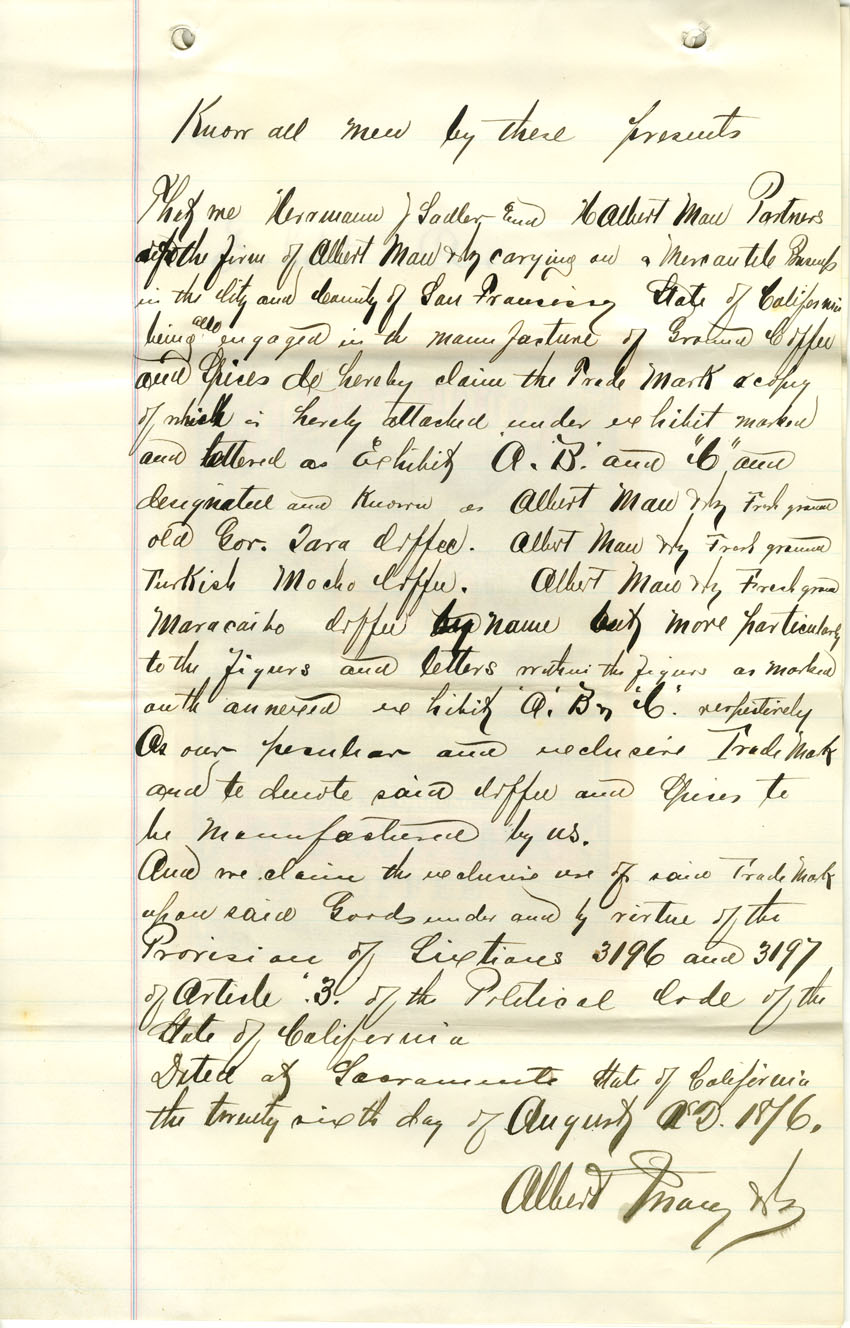 Know all men by these presents
That we Herrmann J Sadler and H Albert Mau Partners
of the firm of Albert Mau & Co carrying on a Mercantile Business
in the City and County of San Francisco State of California
being also engaged in the manufacture of Ground Coffee
and Spices do hereby claim the Trade Mark a copy
of which is hereby attached under exhibit marked
and lettered as Exhibit "A. B." and "C" and
designated and Known as Albert Mau & Co Fresh ground
old Gov. Java Coffee. Albert Mau & Co Fresh ground
Turkish Mocho Coffee. Albert Mau & Co Fresh ground
Maracaibo Coffee by name but more particularly
to the figurs and letters within the figurs as marked
on th annexed exhibit "A." B & "C". respectively
As our peculiar and exclusive Trade Mark
and to denote said Coffee and Spices to
be Manufactured by us.
And we claim the exclusive use of said Trade Mark
upon said Goods under and by virtue of the
Provision of Sections 3196 and 3197
of Article "3." of the Political Code of the
State of California
Dated at Sacramento State of California
the twenty sixth day of August AD. 1876.
Albert Mau & Co